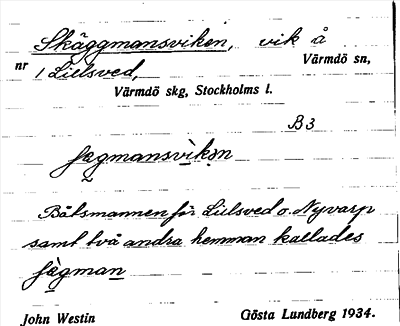 Skäggmansviken, vik å
nr 1 Lillsved, Värmdö sn,
Värmdö skg, Stockholms l.
B3
fægmansvìkən
Båtsmannen för Lillsved o. Nyvarp
samt två andra hemman kallades
fægman
John Westin Gösta Lundberg 1934.